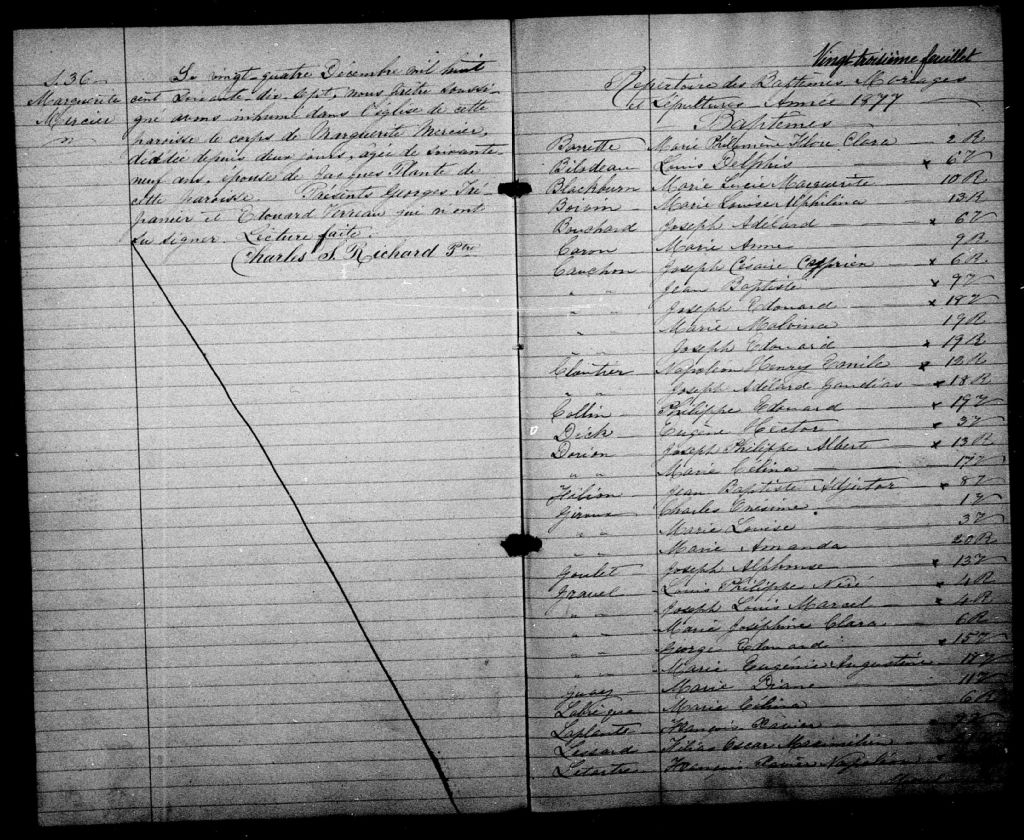 S. 36
Marguerite
Mercier
Le vingt-quatre Décembre mil huit
cent soixante-dix-sept, nous prêtre soussi-
gné avons inhumé dans l'église de cette
paroisse le corps de Marguerite Mercier,
décédée depuis deux jours, âgée de soixante-
neuf ans, épouse de Jacques Plante de
cette paroisse. Présents Georges Tré-
panier et Edouard Verreau qui n'ont
su signer. Lecture faite.
Charles S. Richard Ptre
Vingt-troisième feuillet
Répertoire des Baptêmes Mariages
et Sépultures Année 1877
Baptêmes
Barrette Marie Philomène Clara 2 R
Bilodeau Louis Delphis x 6 V
Blackburn Marie Lucie Marguerite 10 R
Boivin Marie Louise 13 R
Bouchard Joseph Adélard x 6 V
Caron Marie Anne 9 R
Cauchon Joseph Césaire Cyprien x 6 R
" " Jean Baptiste x 9 V
" " Joseph Edouard x 18 V
" " Marie Malvina 19 R
" " Joseph Edouard x 19 R
Cloutier Napoléon Henry Emile x 12 R
" " Joseph Adélard Gaudias x 18 R
Collin Philippe Edouard x 19 V
Dick Eugène Hector x 3 V
Dorion Joseph Philippe Albert x 13 R
" " Marie Célina 17 V
Jean Baptiste Adjutor x 8 V
Giroux Charles Onésime 1 V
" " Marie Louise 3 V
" " Marie Amanda 20 R
Goulet Joseph Alphonse x 13 V
Gravel Louis Philippe Néré x 4 R
" " Joseph Louis Marcel x 4 R
" " Marie Joséphine Clara 6 R
" " George Edouard x 15 V
" " Marie Eugénie Augustine 18 V
Marie Diane 11 V
Labrèque Marie Célina 6 R
Laplante François Xavier
Lessard Oscar Maximilien
Letartre François Xavier Napoléon